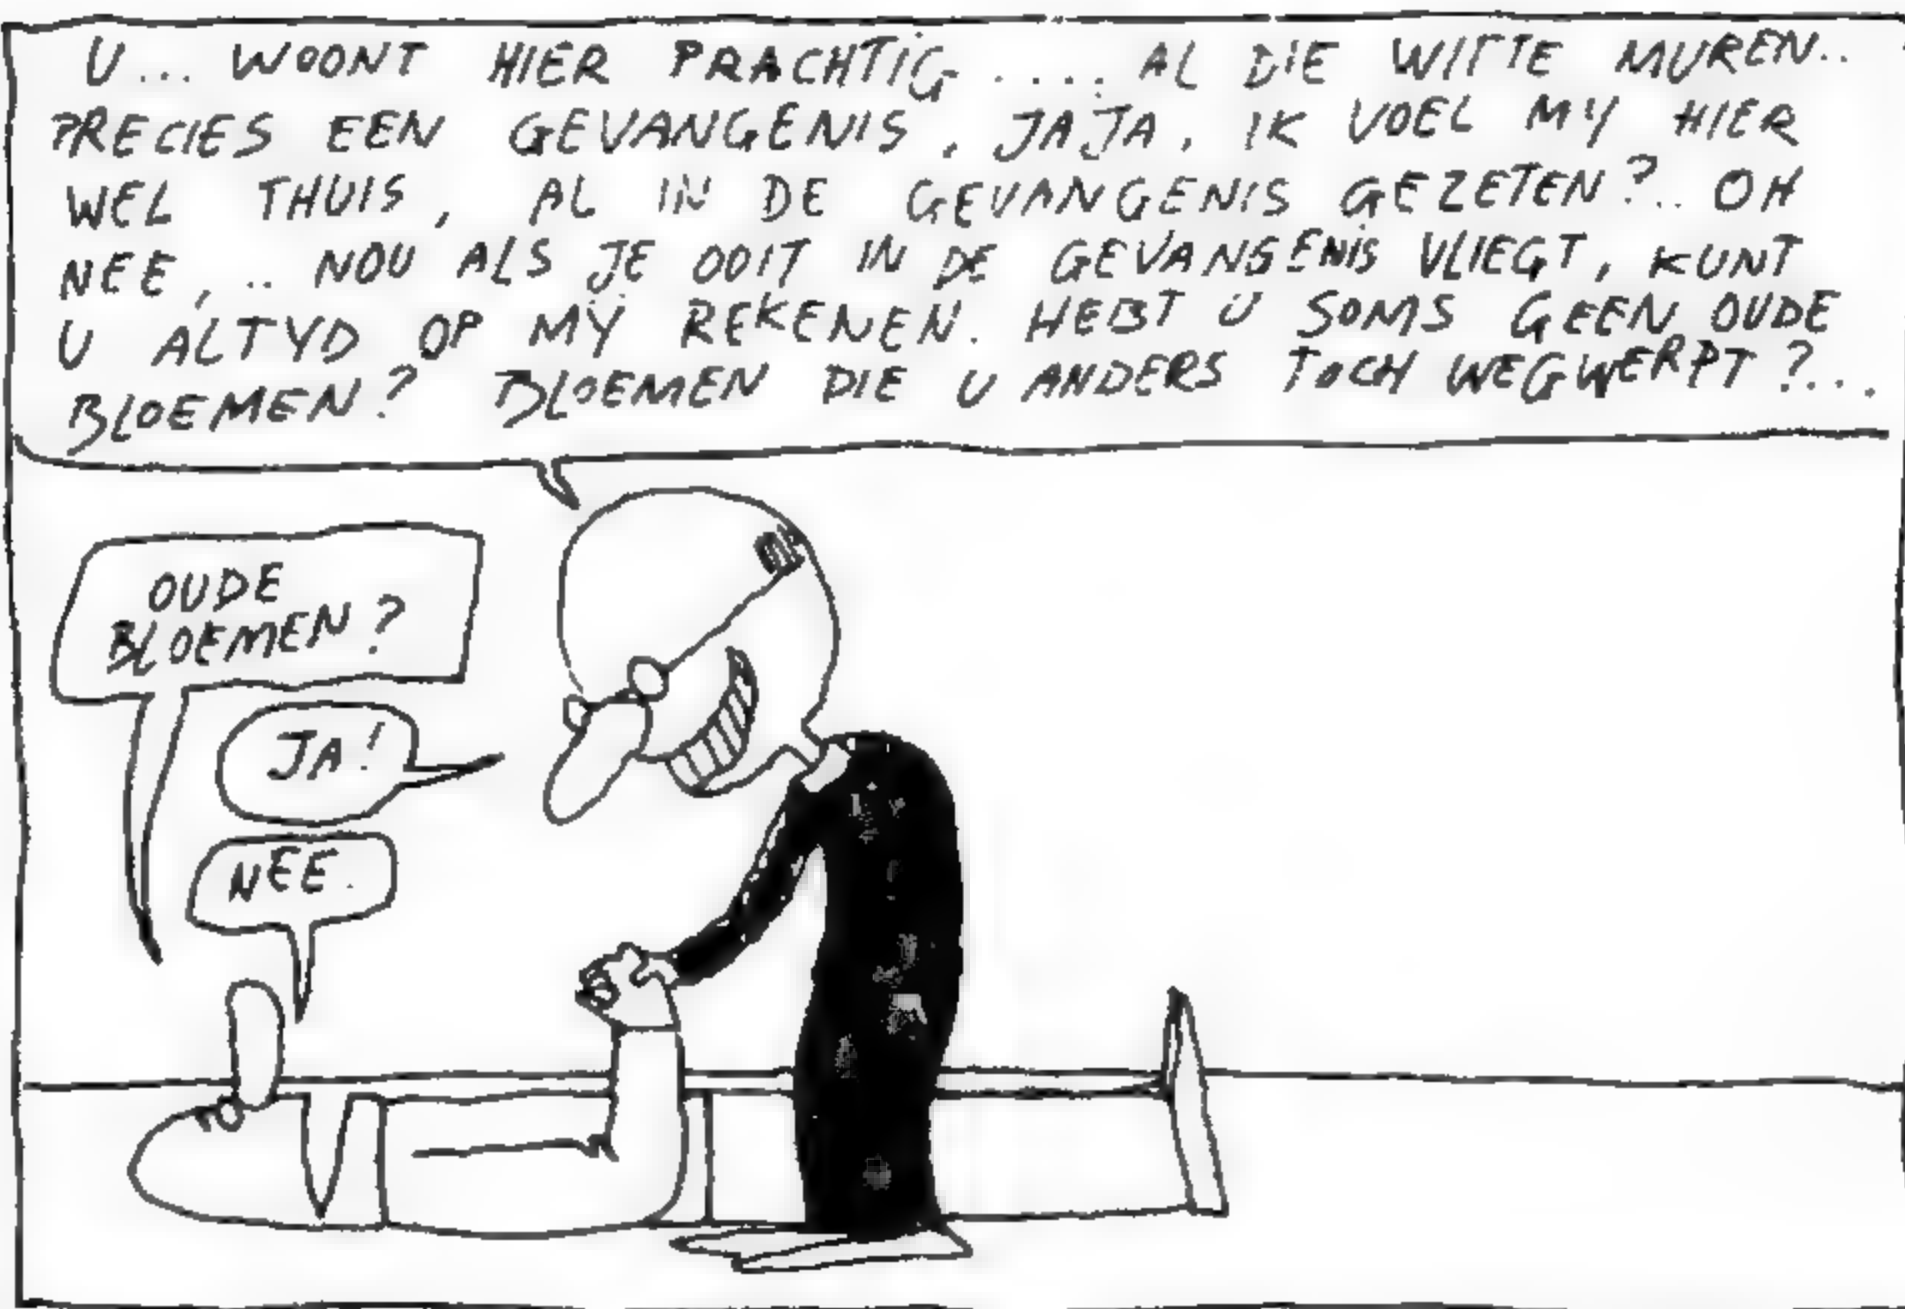 U... WOONT HIER PRACHTIG ..... AL DIE WITTE MUREN..
PRECIES EEN GEVANGENIS, JAJA, IK VOEL MY HIER
WEL THUIS, AL IN DE GEVANGENIS GEZETEN?.. OH
NEE, .. NOU ALS JE OOIT IN DE GEVANGENIS VLIEGT, KUNT
U ALTYD OP MŸ REKENEN. HEBT U SOMS GEEN OUDE
BLOEMEN? BLOEMEN DIE U ANDERS TOCH WEGWERPT?...
OUDE
BLOEMEN?
JA!
NEE.